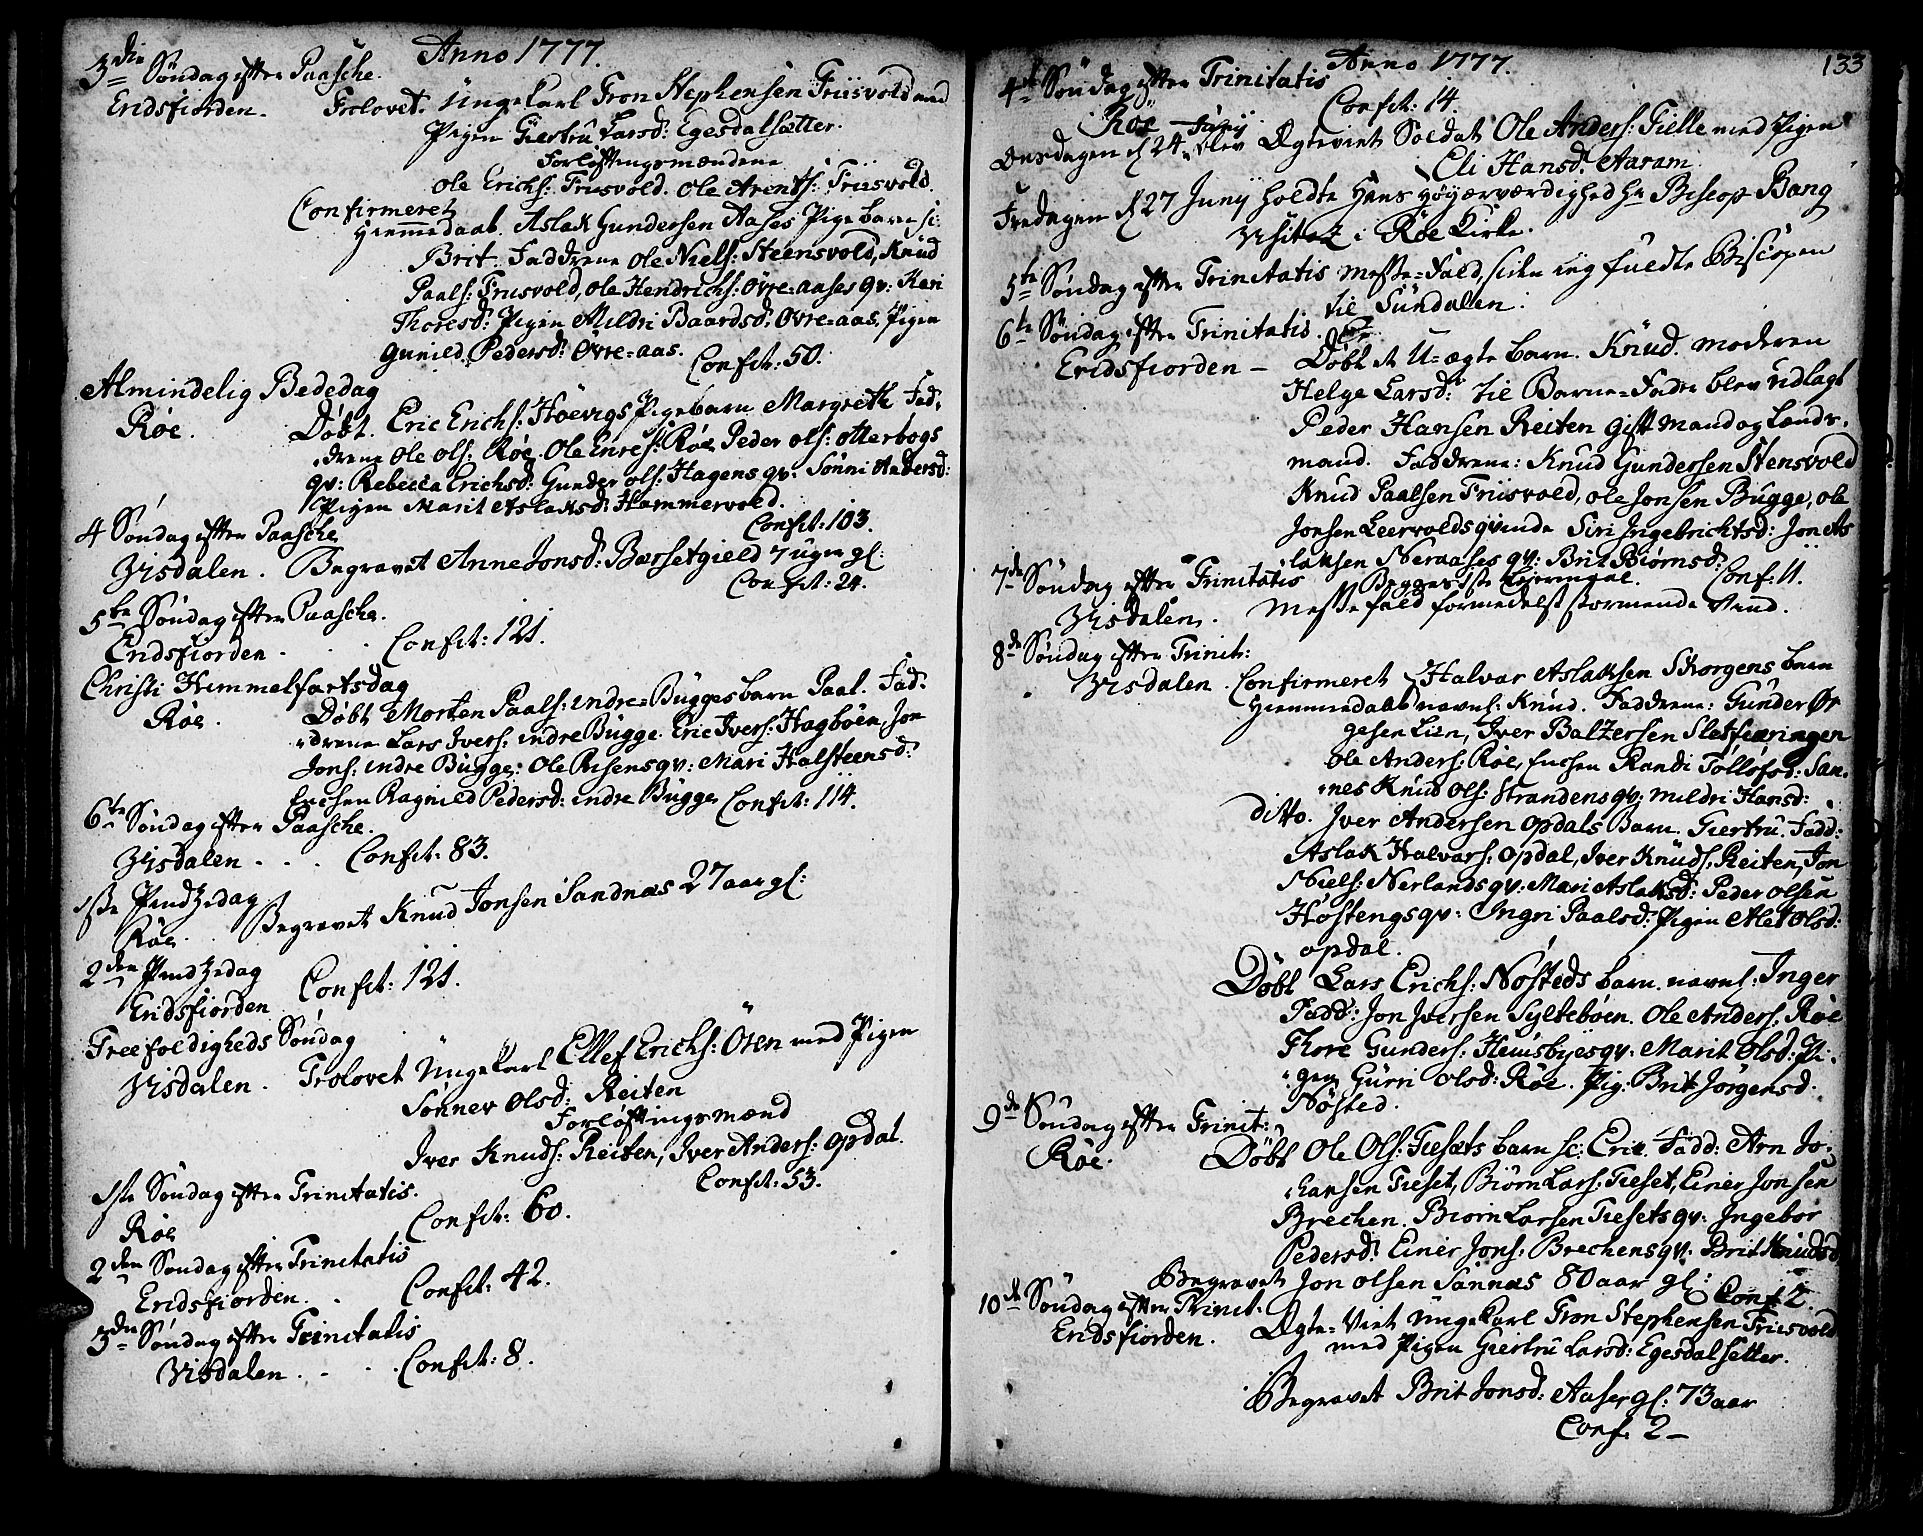 Anno 1777.
3die Søndag efter Paasche.
Eridsfiorden. Trolovet. Ungekarl Tron Stephensen Friisvold med
Pigen Giertru Larsd: Egesdalsætter.
Forløftingsmændene
Ole Erichs: Friisvold. Ole Arents: Friisvold.
Confirmeret
Hiemmedaab. Aslak Gundersen Aases Pigebarn sc:
Brit. Faddrene Ole Niels: Steensvold, Knud
Paals: Friisvold, Ole Hendrichs: Øvre=aases qv: Kari
Thoresd: Pigen Mildri Baardsd: Øvre=aas, Pigen
Gunild Pedersd: Øvre=aas. Confit: 50.
Almindelig Bededag
Røe. Døbt. Eric Erichs: Hoevigs Pigebarn Margreth Fad,
drene Ole Ols: Røe. Ole Enres: Røe Peder Ols: Otterbogs
qv: Rebecca Erichsd: Gunder Ols: Hagens qv: Sønni Andersd:
Pigen Marit Aslaksd: Hammervold.
4 Søndag efter Paasche Confit: 103.
Visdalen. Begravet Anne Jonsd: Barsetgield 7 uger gl:
Confit: 24.
5te Søndag efter Paasche.
Eridsfiorden . . . Confit: 121.
Christi Himmelfartsdag
Røe. Døbt Morten Paals: indre=Bugges barn Paal. Fad:
drene Lars Ivers: indre Bugge. Eric Ivers: Hagbøen, Jon
Jons: indre Bugge: Ole Risens qv: Mari Halsteensd:
Enchen Ragnild Pedersd: indre Bugge Confit: 114.
6te Søndag efter Paasche.
Visdalen . . . Confit: 83.
1ste Pindzedag
Røe. Begravet Knud Jonsen Sandnæs 27 aar gl:
2den Pindzedag
Eridsfiorden Confit: 121.
Treefoldigheds Søndag
Visdalen. Trolovet Ungekarl Ellef Erichs: Øsen med Pigen
Sønnev Olsd: Reiten
Forløftingsmænd
Iver Knuds: Reiten, Iver Anders: Opdal.
Confit: 53.
1ste Søndag efter Trinitatis.
Røe Confit: 60.
2den Søndag efter Trinitatis
Eridsfiorden. . Confit: 42.
3die Søndag efter Trinitatis
Visdalen . . . Confit: 8.
Anno 1777. 133
4de Søndag efter Trinitatis
Røe Confit: 14.
Juny
Onsdagen d 24 blev Ægteviet Soldat Ole Anders: Tielle med Pigen
Eli Hansd. Aaram.
Fredagen d 27 Juny holdte Hans Høyærværdighed Hr Biscop Bang
Visitaz i Røe Kirke.
5te Søndag efter Trinitatis Messe=Fald, siden ieg fuldte Biscopen
til Sundalen.
6te Søndag efter Trinitatis.
Eridsfiorden — Døbt et U=ægte barn. Knud. moderen
Helge Larsd: til Barne=Fader blev udlagt
Peder Hansen Reiten gift mand og Lands,
mand. Faddrene: Knud Gundersen Stensvold
Knud Paalsen Friisvold, Ole Jonsen Bugge, Ole
Jonsen Leervolds qvinde Siri Ingebrichtsd: Jon As
laksen Neraases qv: Brit Biørnsd:
7de Søndag efter Trinitatis Conf: 11.
Visdalen. Messefald formedelst stormende Vind.
8de Søndag efter Trinit:
Visdalen. Confirmeret Halvar Aslaksen Skorgens barn
Hiemmedaab navnl: Knud. Faddrene: Gunder Ør
gesen Lien, Iver Baltzersen Sletfeæringen
Ole Anders: Røe, Enchen Randi Tollofsd: San,
nes Knud Ols: Strandens qv: Mildri Hansd:
ditto. Iver Andersen Opdals Barn. Giertru. Fadd:
Aslak Halvars: Opdal, Iver Knuds. Reiten, Jon
Niels: Nerlands qv: Mari Aslaksd: Peder Olsen
Høstengs qv: Ingri Paalsd: Pigen Alet Olsd:
opdal.
Døbt Lars Erichs: Nøsteds barn navnl: Inger
Fadd: Jon Iversen Syltebøen. Ole Anders: Røe
Thore Gunders: Heinsbyes qv: Marit Olsd: Pi,
gen Gurri Olsd: Røe. Pig: Brit Jørgensd.
Nøsted.
9de Søndag efter Trinit:
Røe. Døbt Ole Ols: Tiesets barn sc: Eric. Fadd: Arn Jo,
hansen Tieset, Biørn Lars: Tieset, Einer Jonsen
Brechen. Biørn Larsen Tiesets qv: Ingebor
Pedersd: Einer Jons: Brechens qv: Brit Knudsd
Begravet Jon Olsen Sannæs 80 aar gl: Conf 2.
10de Søndag efter Trinit.
Eridsfiorden. Ægte=Viet Ungekarl Tron Stephensen Friisvold
med Pigen Giertru Larsd: Egesdalsetter.
Begravet Brit Jonsd: Aases gl: 73 aar
Conf. 2 —